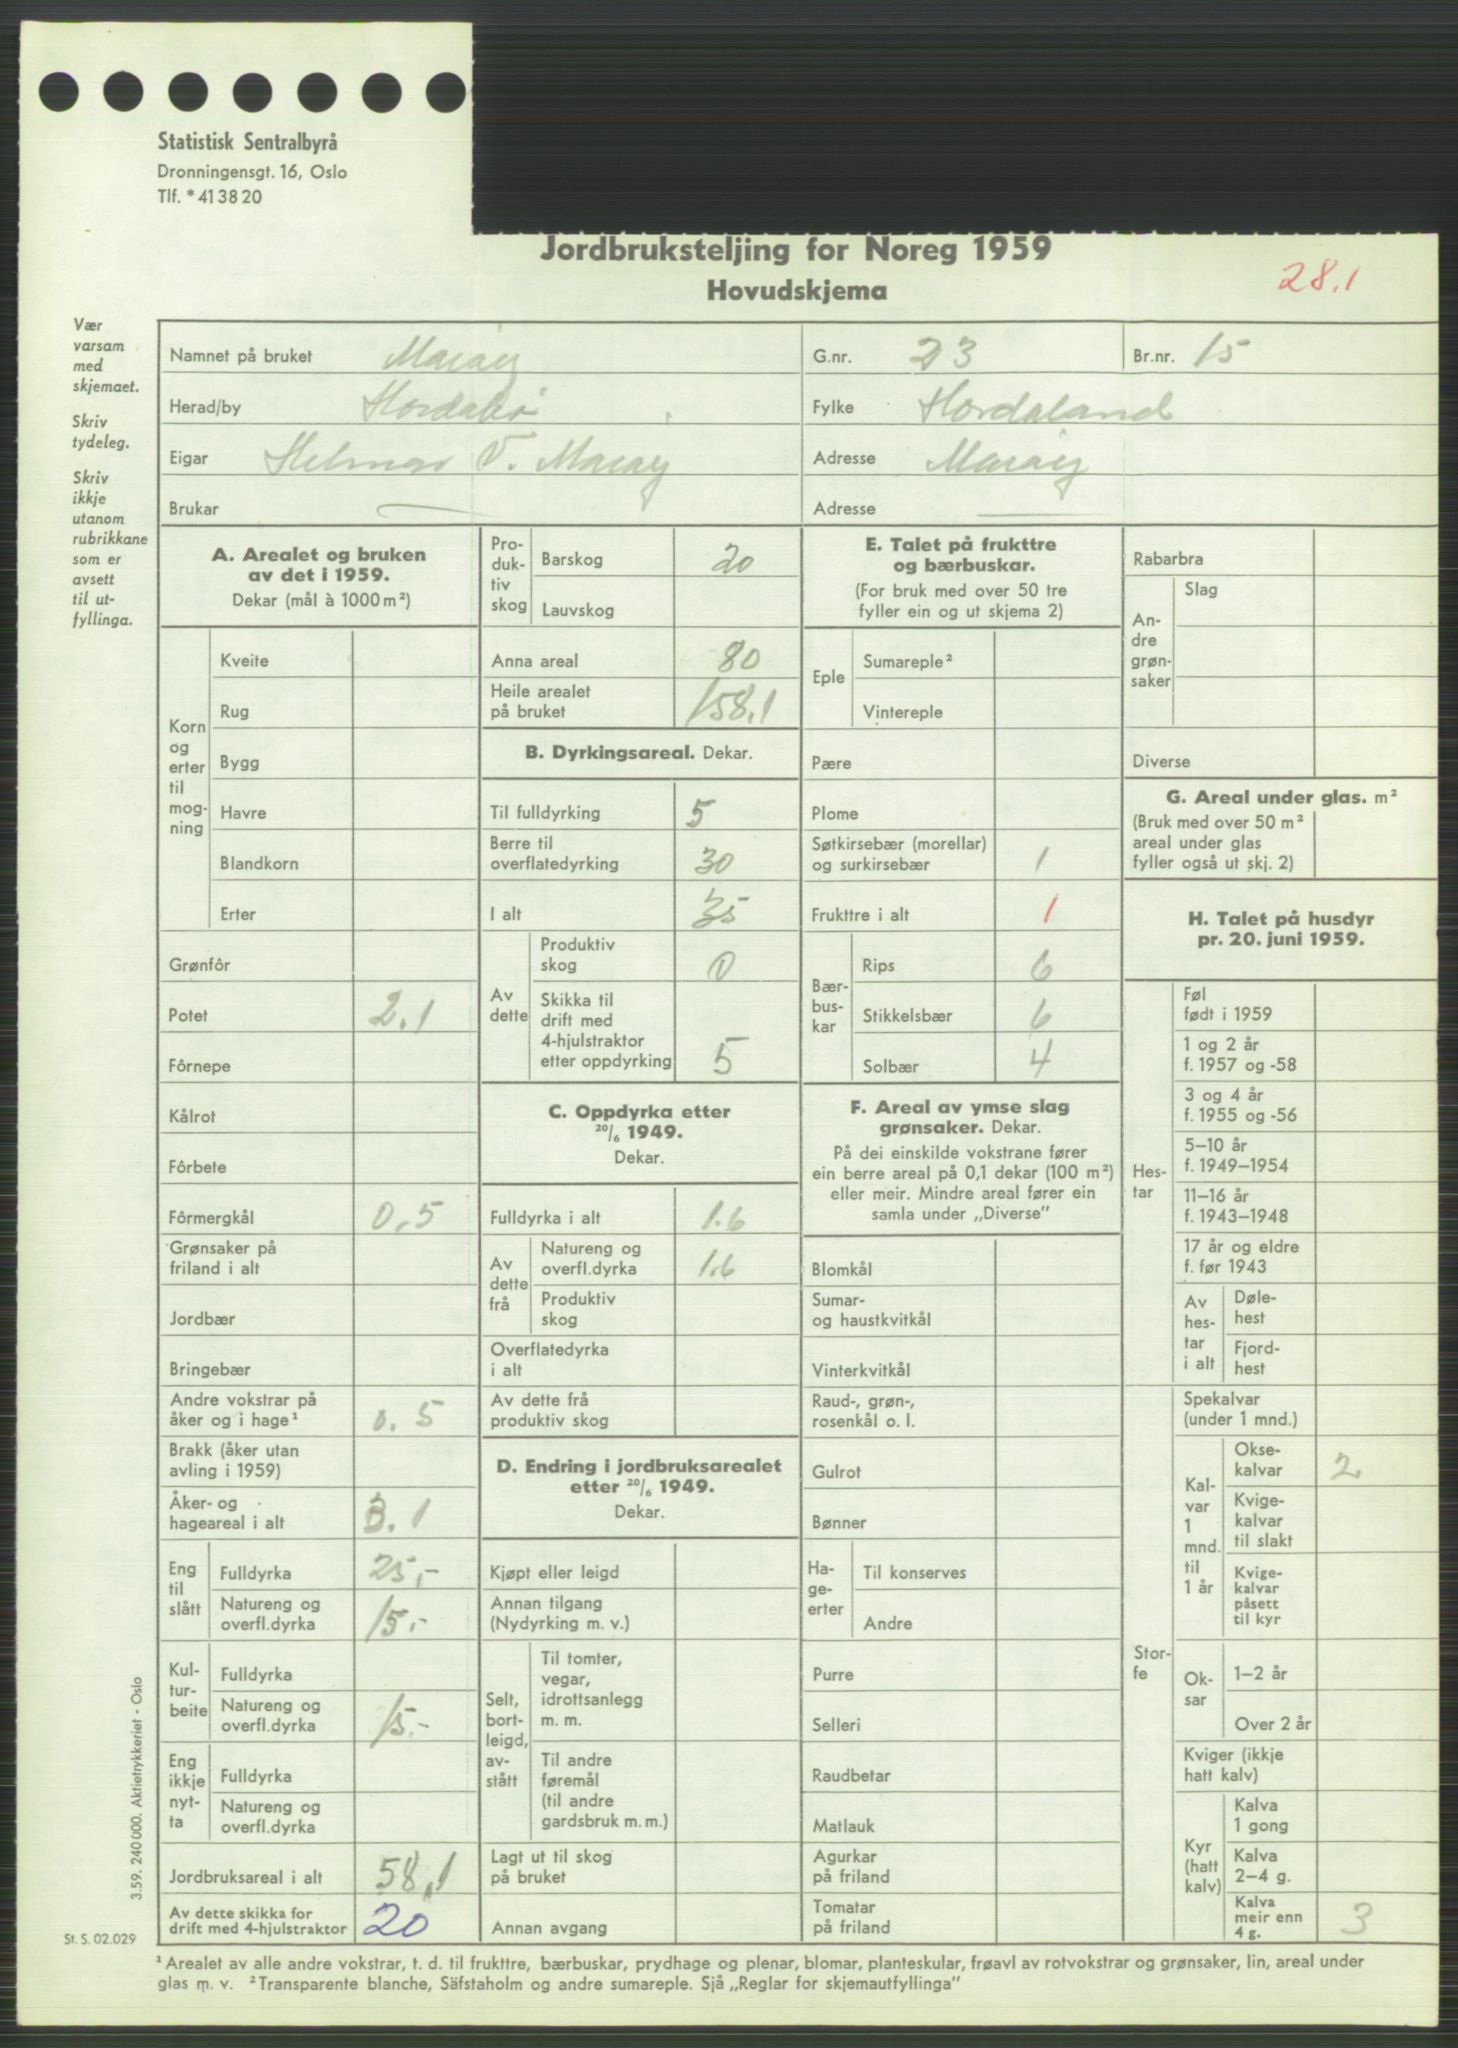 Statistisk Sentralbyrå
Dronningensgt. 16, Oslo
Tlf. * 41 38 20
Jordbruksteljing for Noreg 1959
Hovudskjema
28.1
Vær
varsam
med
skjemaet.
Skriv
tydeleg.
Skriv
ikkje
utanom
rubrikkane
som er
avsett
til ut-
fyllinga.
Namnet på bruket
G.nr. 23
Br.nr. 15
Herad/by Hordabø
Fylke Hordaland
Eigar Helmar
Adresse
Brukar —
Adresse —
A. Arealet og bruken
av det i 1959.
Dekar (mål à 1000 m²)
Korn
og
erter
til
mog-
ning
Kveite
Rug
Bygg
Havre
Blandkorn
Erter
Grønfôr
Potet 2.1
Fôrnepe
Kålrot
Fôrbete
Fôrmergkål 0,5
Grønsaker på
friland i alt
Jordbær
Bringebær
Andre vokstrar på
åker og i hage¹ 0.5
Brakk (åker utan
avling i 1959)
Åker- og
hageareal i alt 3.1
Eng
til
slått
Fulldyrka 25,-
Natureng og
overfl.dyrka 15.-
Kul-
tur-
beite
Fulldyrka
Natureng og
overfl.dyrka 15.-
Eng
ikkje
nyt-
ta
Fulldyrka
Natureng og
overfl.dyrka
Jordbruksareal i alt 58,1
Av dette skikka for
drift med 4-hjulstraktor 20
Pro-
duk-
tiv
skog
Barskog 20
Lauvskog
Anna areal 80
Heile arealet
på bruket 158,1
B. Dyrkingsareal. Dekar.
Til fulldyrking 5
Berre til
overflatedyrking 30
I alt 35
Av
dette
Produktiv
skog 0
Skikka til
drift med
4-hjulstraktor
etter oppdyrking 5
C. Oppdyrka etter
20/6 1949.
Dekar.
Fulldyrka i alt 1.6
Av
dette
frå
Natureng og
overfl.dyrka 1.6
Produktiv
skog
Overflatedyrka
i alt
Av dette frå
produktiv skog
D. Endring i jordbruksarealet
etter 20/6 1949.
Dekar.
Kjøpt eller leigd
Annan tilgang
(Nydyrking m. v.)
Selt,
bort-
leigd,
av-
stått
Til tomter,
vegar,
idrottsanlegg
m. m.
Til andre
føremål
(til andre
gardsbruk m. m.)
Lagt ut til skog
på bruket
Annan avgang
E. Talet på frukttre
og bærbuskar.
(For bruk med over 50 tre
fyller ein og ut skjema 2)
Eple
Sumareple²
Vintereple
Pære
Plome
Søtkirsebær (morellar)
og surkirsebær 1
Frukttre i alt 1
Bær-
bus-
kar
Rips 6
Stikkelsbær 6
Solbær 4
F. Areal av ymse slag
grønsaker. Dekar.
På dei einskilde vokstrane fører
ein berre areal på 0,1 dekar (100 m²)
eller meir. Mindre areal fører ein
samla under „Diverse”
Blomkål
Sumar-
og haustkvitkål
Vinterkvitkål
Raud-, grøn-,
rosenkål o. l.
Gulrot
Bønner
Ha-
ge-
erter
Til konserves
Andre
Purre
Selleri
Raudbetar
Matlauk
Agurkar
på friland
Tomatar
på friland
Rabarbra
An-
dre
grøn-
saker
Slag
Diverse
G. Areal under glas. m²
(Bruk med over 50 m²
areal under glas
fyller også ut skj. 2)
H. Talet på husdyr
pr. 20. juni 1959.
Hes-
tar
Føl
født i 1959
1 og 2 år
f. 1957 og -58
3 og 4 år
f. 1955 og -56
5–10 år
f. 1949–1954
11–16 år
f. 1943–1948
17 år og eldre
f. før 1943
Av
hes-
tar
i alt
Døle-
hest
Fjord-
hest
Stor-
fe
Spekalvar
(under 1 mnd.)
Kal-
var
1
mnd.
til
1 år
Okse-
kalvar 2
Kvige-
kalvar
til slakt
Kvige-
kalvar
påsett
til kyr
Ok-
sar
1–2 år
Over 2 år
Kviger (ikkje
hatt kalv)
Kyr
(hatt
kalv)
Kalva
1 gong
Kalva
2–4 g.
Kalva
meir enn
4 g. 3
3.59. 240 000. Aktietrykkeriet - Oslo
St. S. 02.029
¹ Arealet av alle andre vokstrar, t. d. til frukttre, bærbuskar, prydhage og plenar, blomar, planteskular, frøavl av rotvokstrar og grønsaker, lin, areal under
glas m. v. ² Transparente blanche, Säfstaholm og andre sumareple. Sjå „Reglar for skjemautfyllinga”